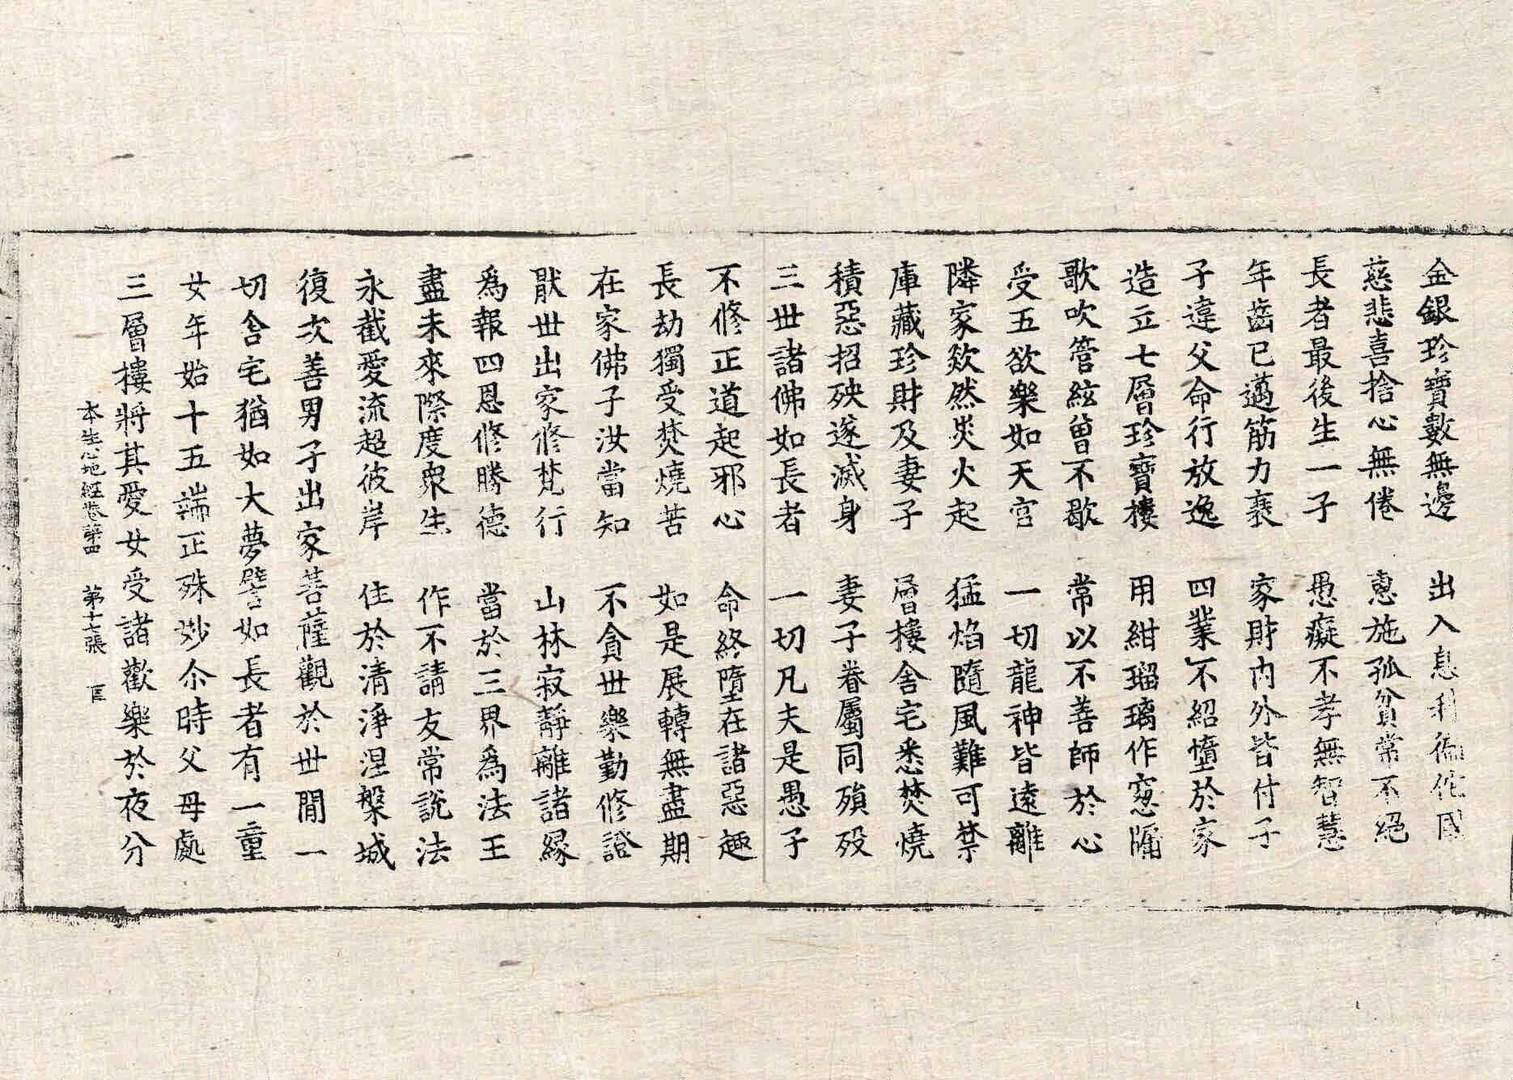 金銀珍寶數無邊　出入息利徧他國
慈悲喜捨心無倦　惠施孤貧常不絕
長者最後生一子　愚癡不孝無智慧
年齒已邁筋力衰　家財內外皆付子
子違父命行放逸　四業不紹墮於家
造立七層珍寶樓　用紺瑠璃作窓牖
歌吹管絃曾不歇　常以不善師於心
受五欲樂如天宮　一切龍神皆遠離
隣家欻然災火起　猛焰隨風難可禁
庫藏珍財及妻子　層樓舍宅悉焚燒
積惡招殃遂滅身　妻子眷屬同殞歿
三世諸佛如長者　一切凡夫是愚子
不修正道起邪心　命終墮在諸惡趣
長劫獨受焚燒苦　如是展轉無盡期
在家佛子汝當知　不貪世樂勤修證
厭世出家修梵行　山林寂靜離諸緣
爲報四恩修勝德　當於三界爲法王
盡未來際度衆生　作不請友常說法
永截愛流超彼岸　住於清淨涅槃城
復次善男子出家菩薩觀於世間一
切舍宅猶如大夢譬如長者有一童
女年始十五端正殊妙尒時父母處
三層樓將其愛女受諸歡樂於夜分
本生心地經卷第四　第十七張　匡